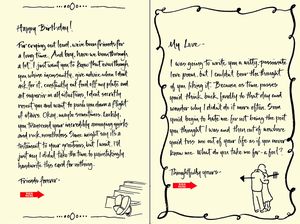 Happy Birthday!
For crying out loud, we've been friends for
a long time. And boy, have we been through
a lot. I just want you to know that even though
you whine incessantly, give advice when I don't
ask for it, constantly eat food off my plate and
act superior in all situations, I don't secretly
resent you and want to push you down a flight
of stairs. Okay, maybe sometimes. Luckily,
you transcend your incredibly annoying quirks
and rock nonetheless. Some might say it's a
testament to your greatness, but I won't. I'll
just say I didn't take the time to painstakingly
handwrite this card for nothing.
Friends forever
My Love
I was going to write you a witty, passionate
love poem, but I couldn't bear the thought
of you liking it. Because as time passes
you'd think back fondly to that day and
wonder why I didn't do it more often. Soon
you'd begin to hate me for not being the poet
you thought I was and then out of nowhere
you'd toss me out of your life as if you never
knew me. What do you take me for a fool?
Thoughtfully yours